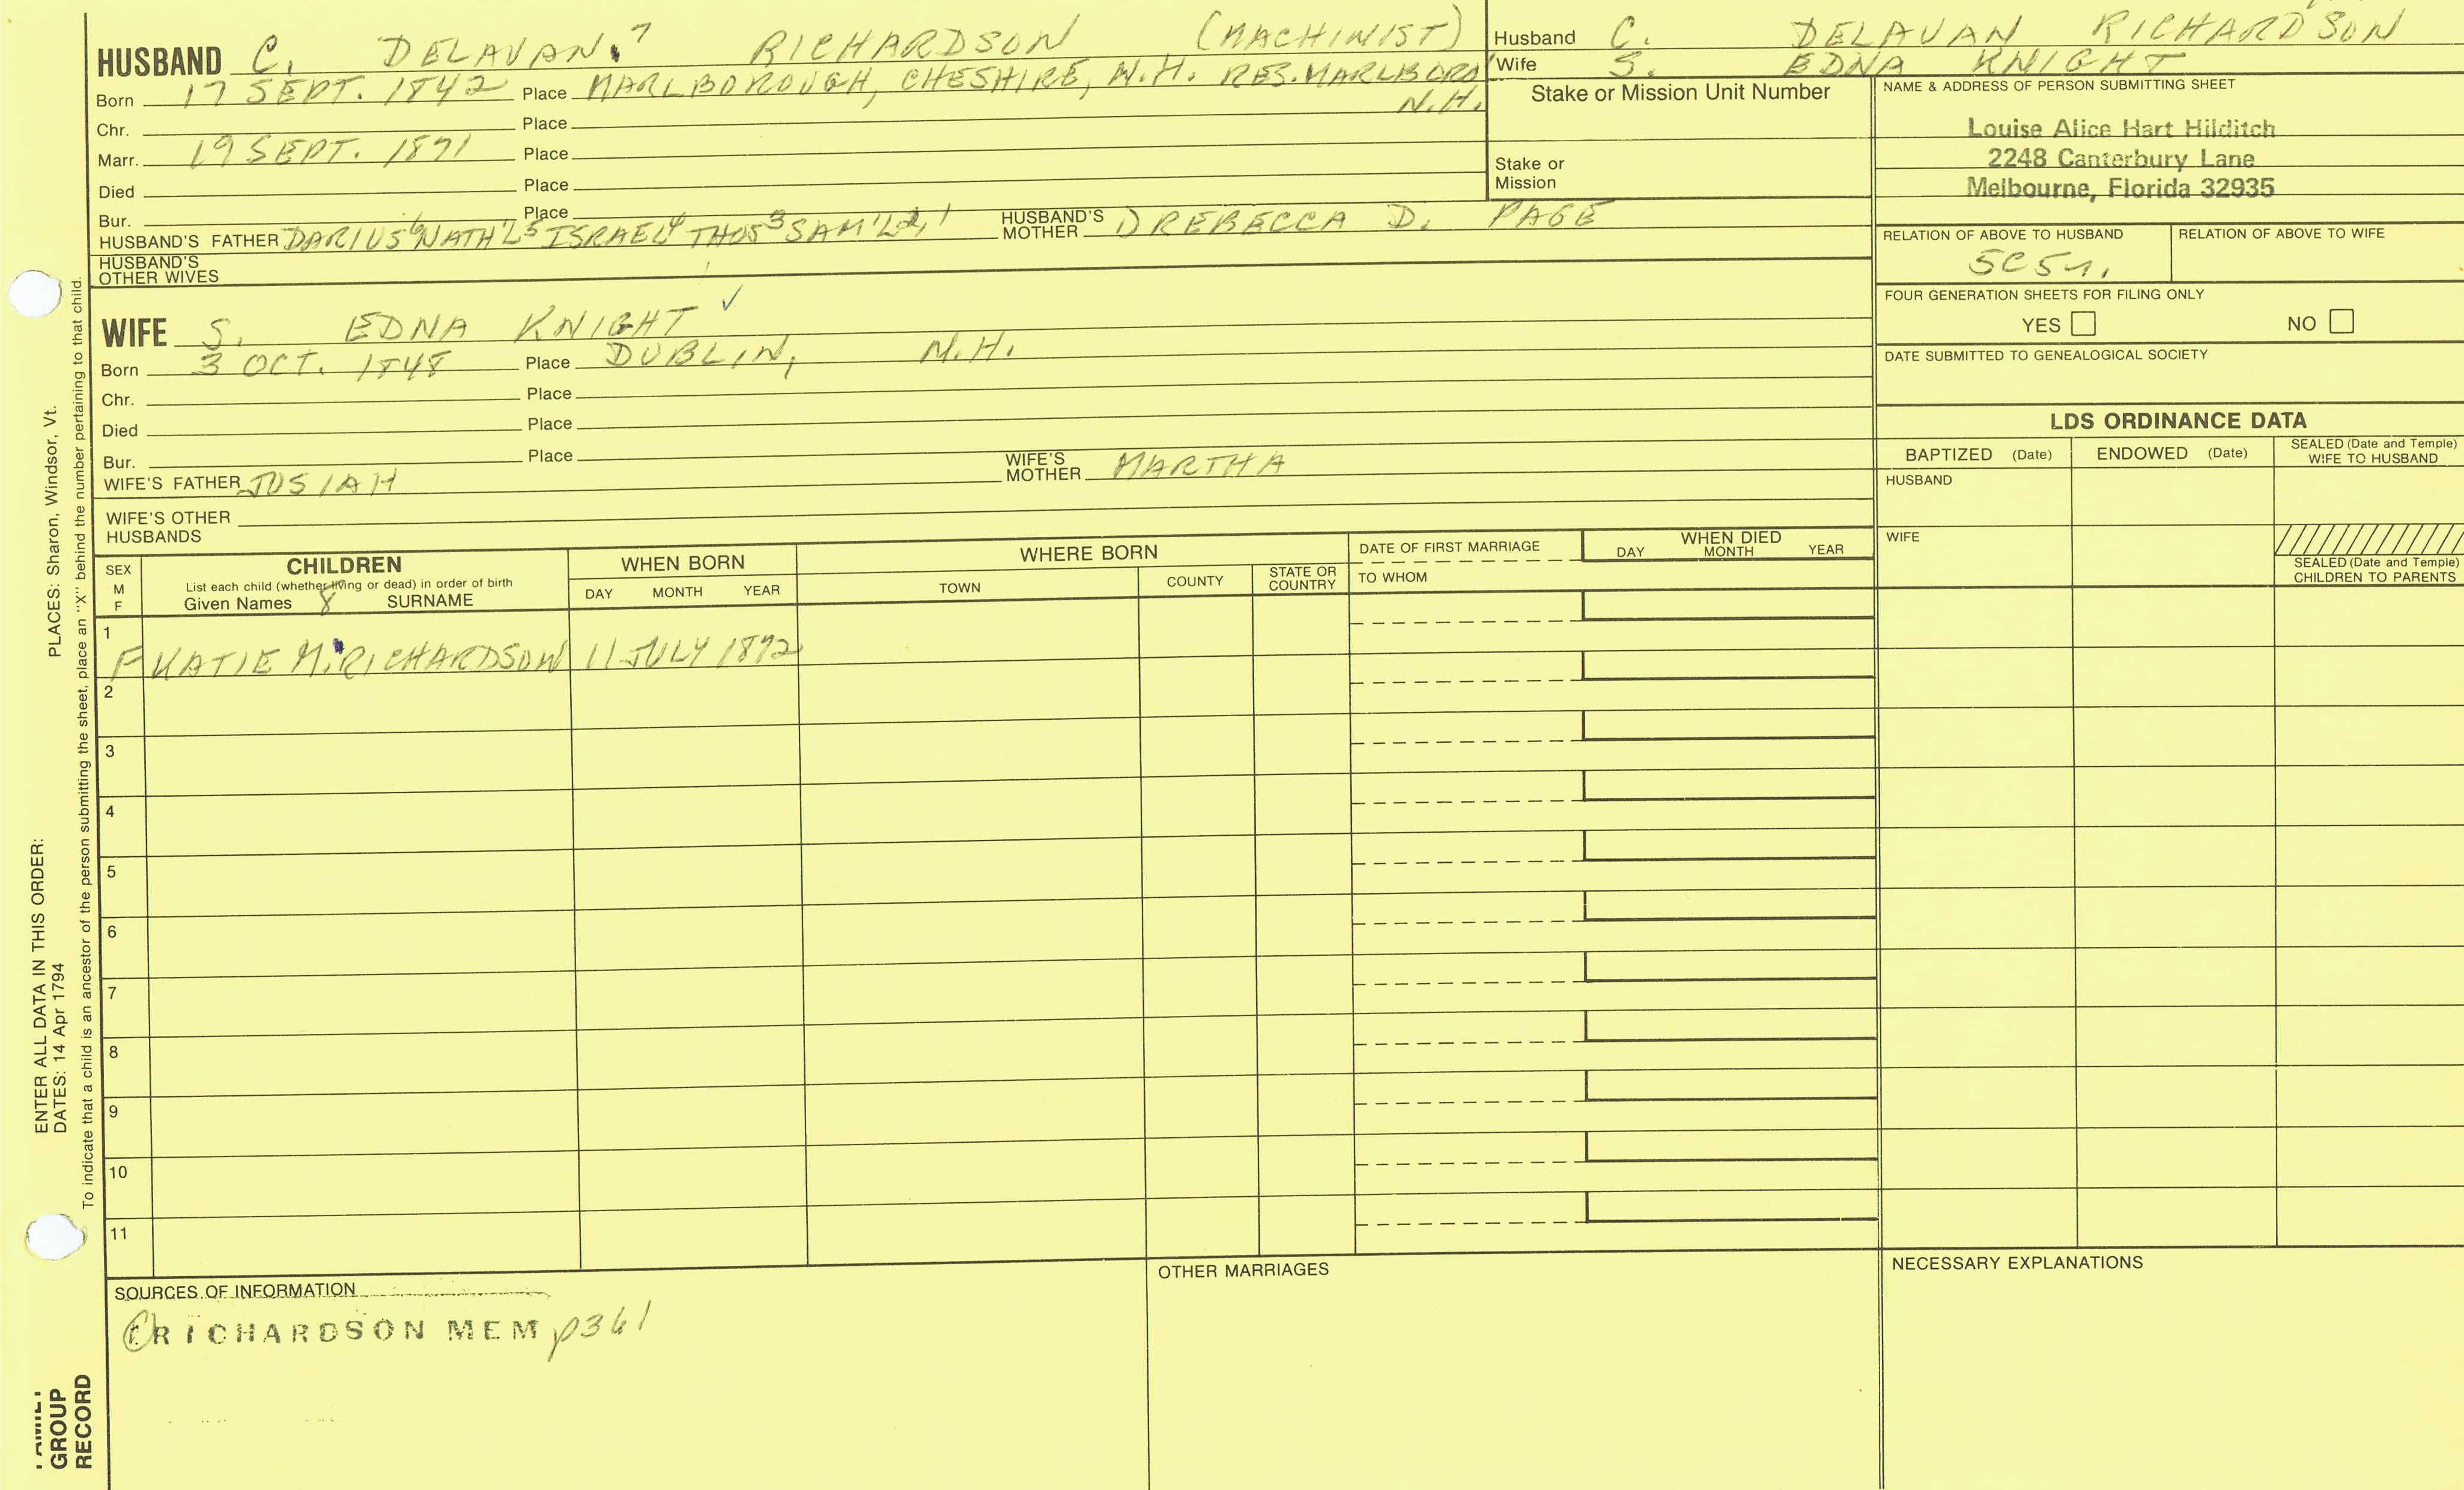 HUSBAND C. DELAVAN.7 RICHARDSON (MACHINIST)
Born 17 SEPT. 1842 Place MARLBOROUGH, CHESHIRE, N.H. RES. MARLBORO
N.H.
Chr. Place
Marr. 19 SEPT. 1871 Place
Died Place
Bur. Place
HUSBAND'S FATHER DARIUS6 NATH'L5 ISRAEL4 THOS3 SAM'L2,1 HUSBAND'S MOTHER 1) REBECCA D. PAGE
HUSBAND'S
OTHER WIVES
Husband C. DELAVAN RICHARDSON
Wife S. EDNA KNIGHT
Stake or Mission Unit Number
Stake or
Mission
NAME & ADDRESS OF PERSON SUBMITTING SHEET
Louise Alice Hart Hilditch
2248 Canterbury Lane
Melbourne, Florida 32935
RELATION OF ABOVE TO HUSBAND RELATION OF ABOVE TO WIFE
5C5r.
FOUR GENERATION SHEETS FOR FILING ONLY
YES NO
DATE SUBMITTED TO GENEALOGICAL SOCIETY
WIFE S. EDNA KNIGHT ✓
Born 3 OCT. 1848 Place DUBLIN, N.H.
Chr. Place
Died Place
Bur. Place
WIFE'S FATHER JOSIAH WIFE'S MOTHER MARTHA
WIFE'S OTHER
HUSBANDS
LDS ORDINANCE DATA
BAPTIZED (Date) ENDOWED (Date) SEALED (Date and Temple) WIFE TO HUSBAND
HUSBAND
WIFE
SEALED (Date and Temple)
CHILDREN TO PARENTS
SEX
M
F
CHILDREN
List each child (whether living or dead) in order of birth
Given Names 8 SURNAME
WHEN BORN
DAY MONTH YEAR
WHERE BORN
TOWN COUNTY STATE OR COUNTRY
DATE OF FIRST MARRIAGE
TO WHOM
WHEN DIED
DAY MONTH YEAR
1
F KATIE M. RICHARDSON 11 JULY 1872
2
3
4
5
6
7
8
9
10
11
SOURCES OF INFORMATION
RICHARDSON MEM p361
OTHER MARRIAGES
NECESSARY EXPLANATIONS
ENTER ALL DATA IN THIS ORDER:
DATES: 14 Apr 1794 PLACES: Sharon, Windsor, Vt.
To indicate that a child is an ancestor of the person submitting the sheet, place an "X" behind the number pertaining to that child.
FAMILY
GROUP
RECORD